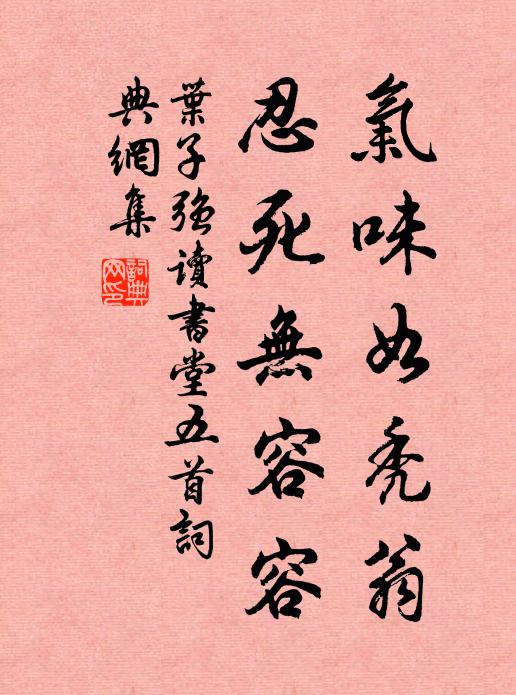 氣味如秃翁
忍死無容容
葉子強讀書堂五首詞
典網集
詞典網印